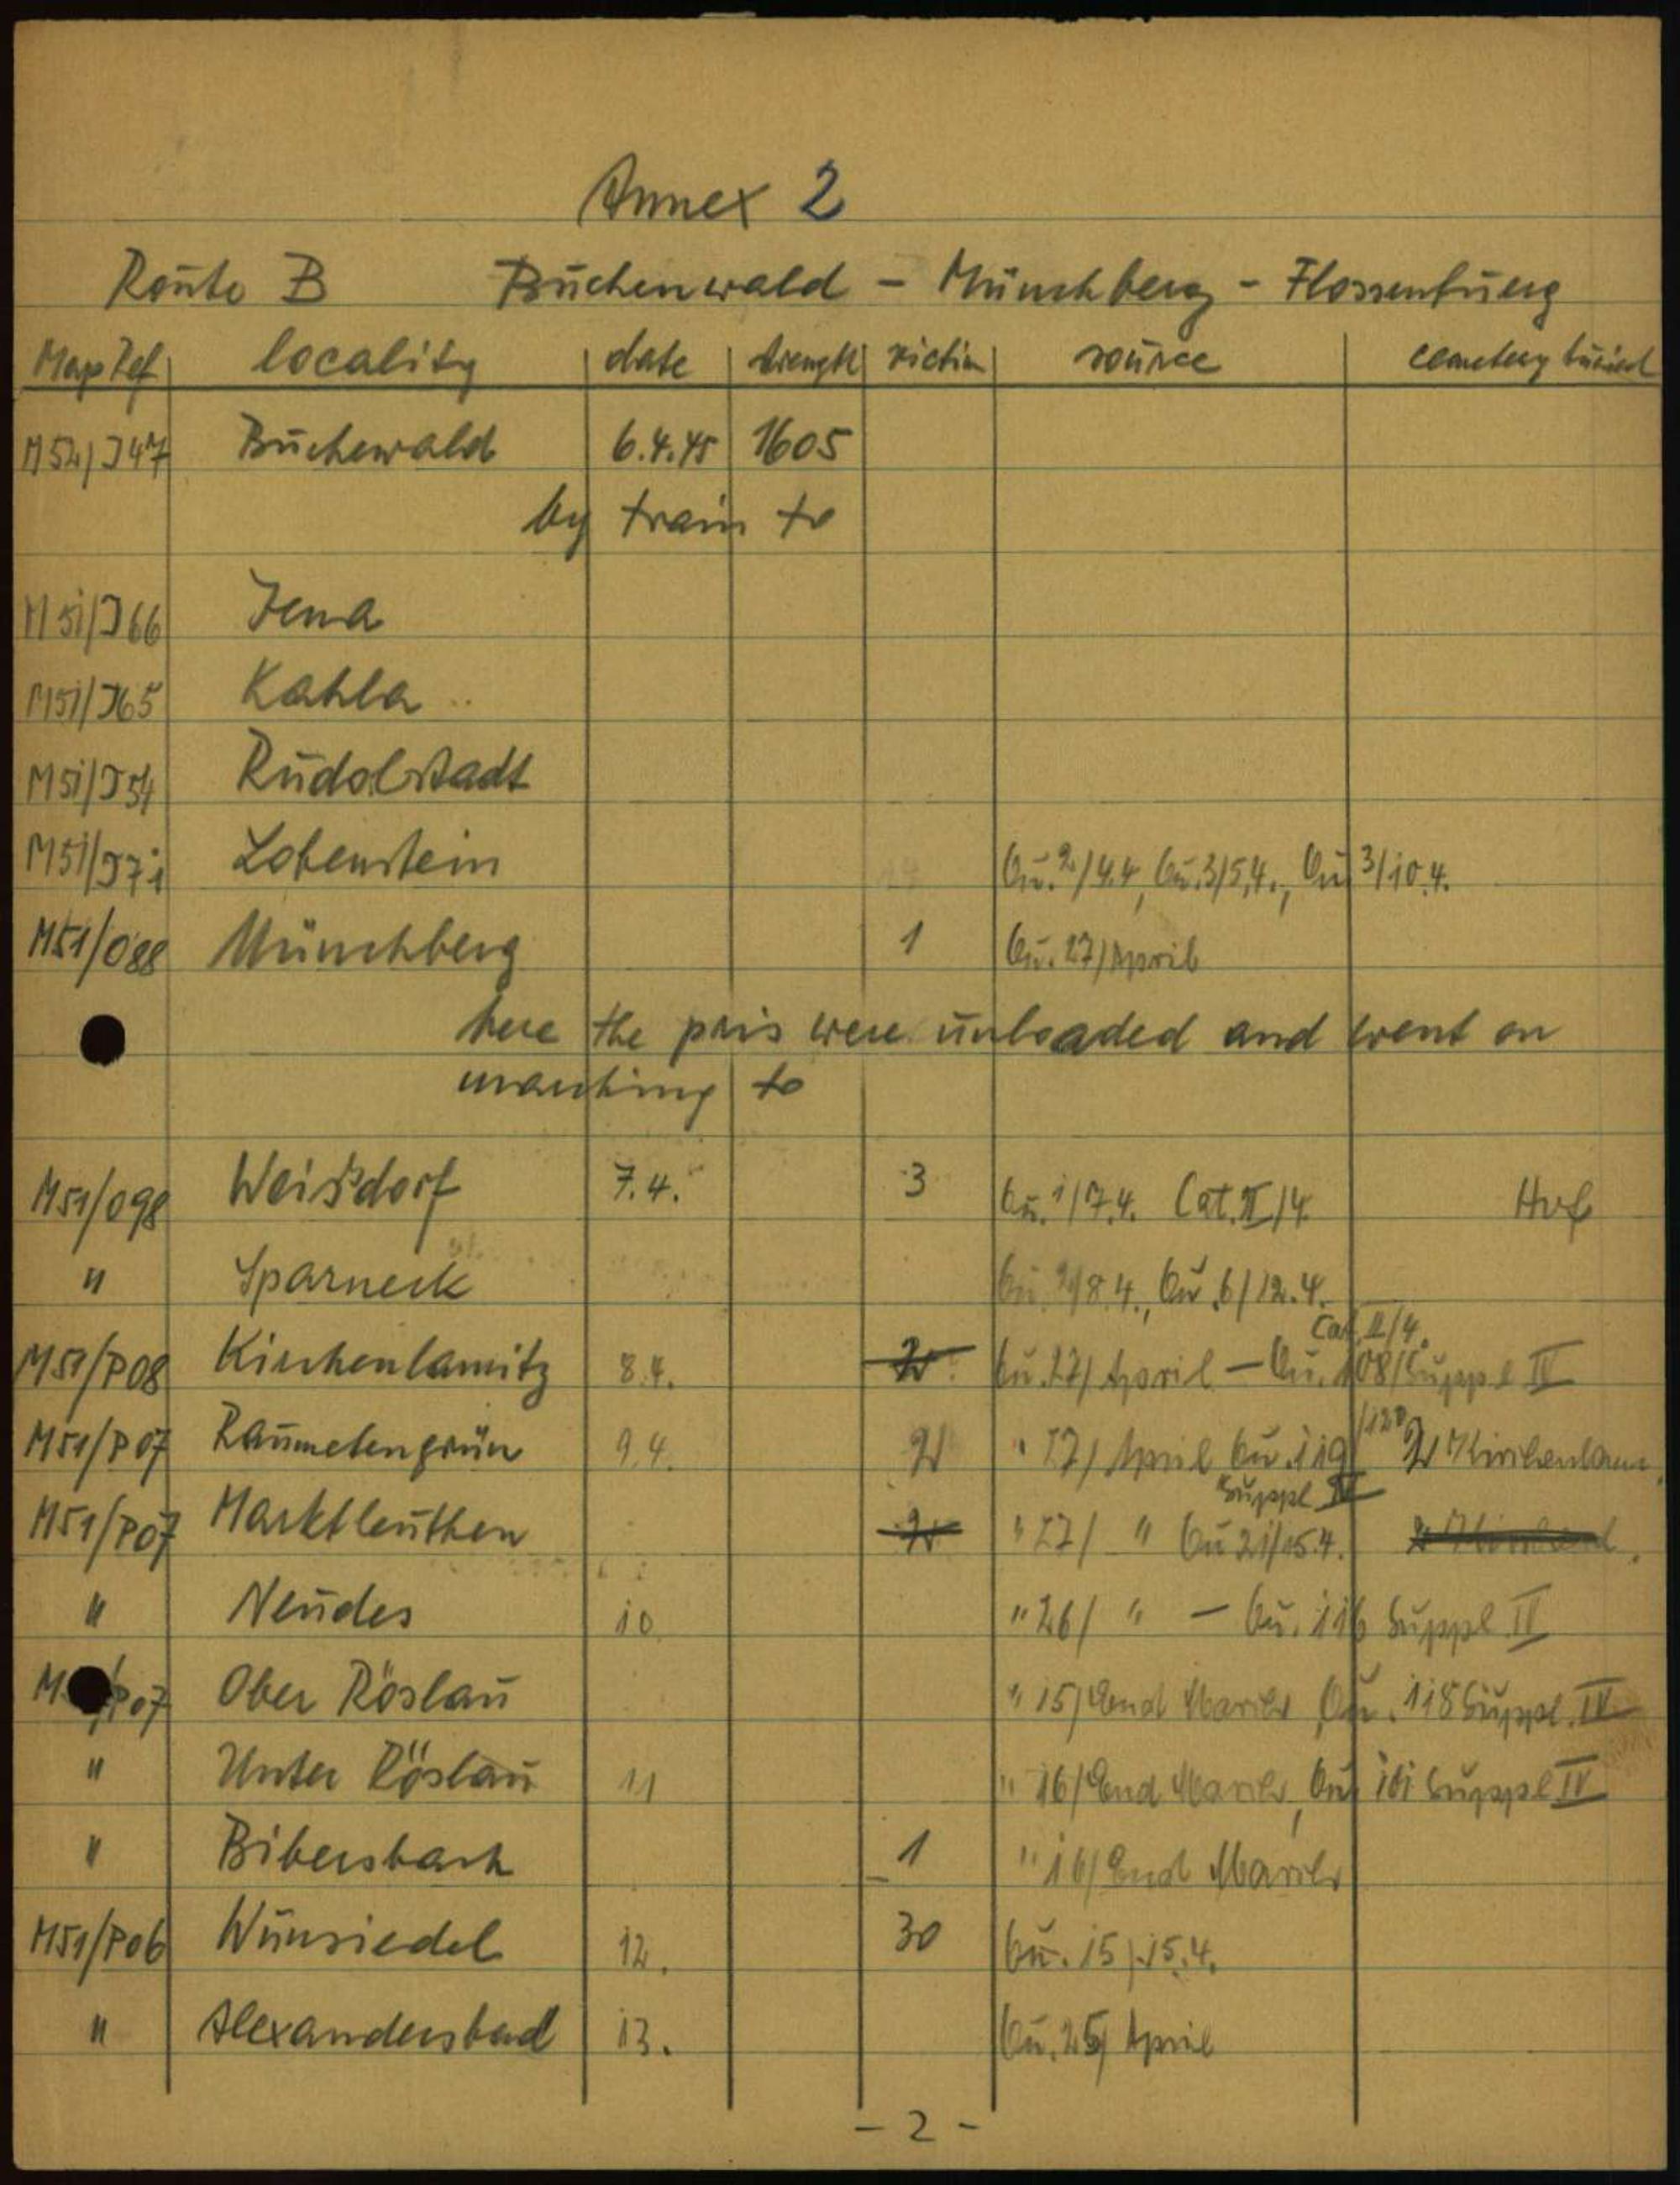 Annex 2
Route B Buchenwald - Münchberg - Flossenbürg
Map Ref locality date strength victim source cemetery buried
M52/J47 Buchewald 6.4.45 1605
by train to
M51/J66 Jena
M51/J65 Kahla
M51/J54 Rudolstadt
M51/J71 Lobenstein Bu. 2/4.4, Bu. 3/5.4., Bu 3/10.4.
M51/O88 Münchberg 1 Bu. 27/April
here the pris were unloaded and went on
marching to
M51/O98 Weißdorf 7.4. 3 Bu. 1/7.4. Cat. II/4 Hof
" Sparneck Bu. 2/8.4., Bu. 6/12.4.
Cat. II/4.
M51/P08 Kirchenlamitz 8.4. 2 Bu. 27/April — Bu. 108/Suppl IV
M51/P07 Raumetengrün 9.4. 2 " 27/April Bu. 119/120 2 Kirchenlam.
Suppl IV
M51/P07 Marktleuthen 2 " 27/ " Bu 21/15.4.
" Neudes 10 " 26/ " — Bu. 116 Suppl. IV
M P07 Ober Röslau " 15/End March, Bu. 118 Suppl. IV
" Unter Röslau 11 " 16/End March, Bu 101 Suppl IV
" Bibersbach 1 " 16/End March
M51/P06 Wunsiedel 12. 30 Bu. 15/15.4.
" Alexandersbad 13. Bu. 25/April
- 2 -